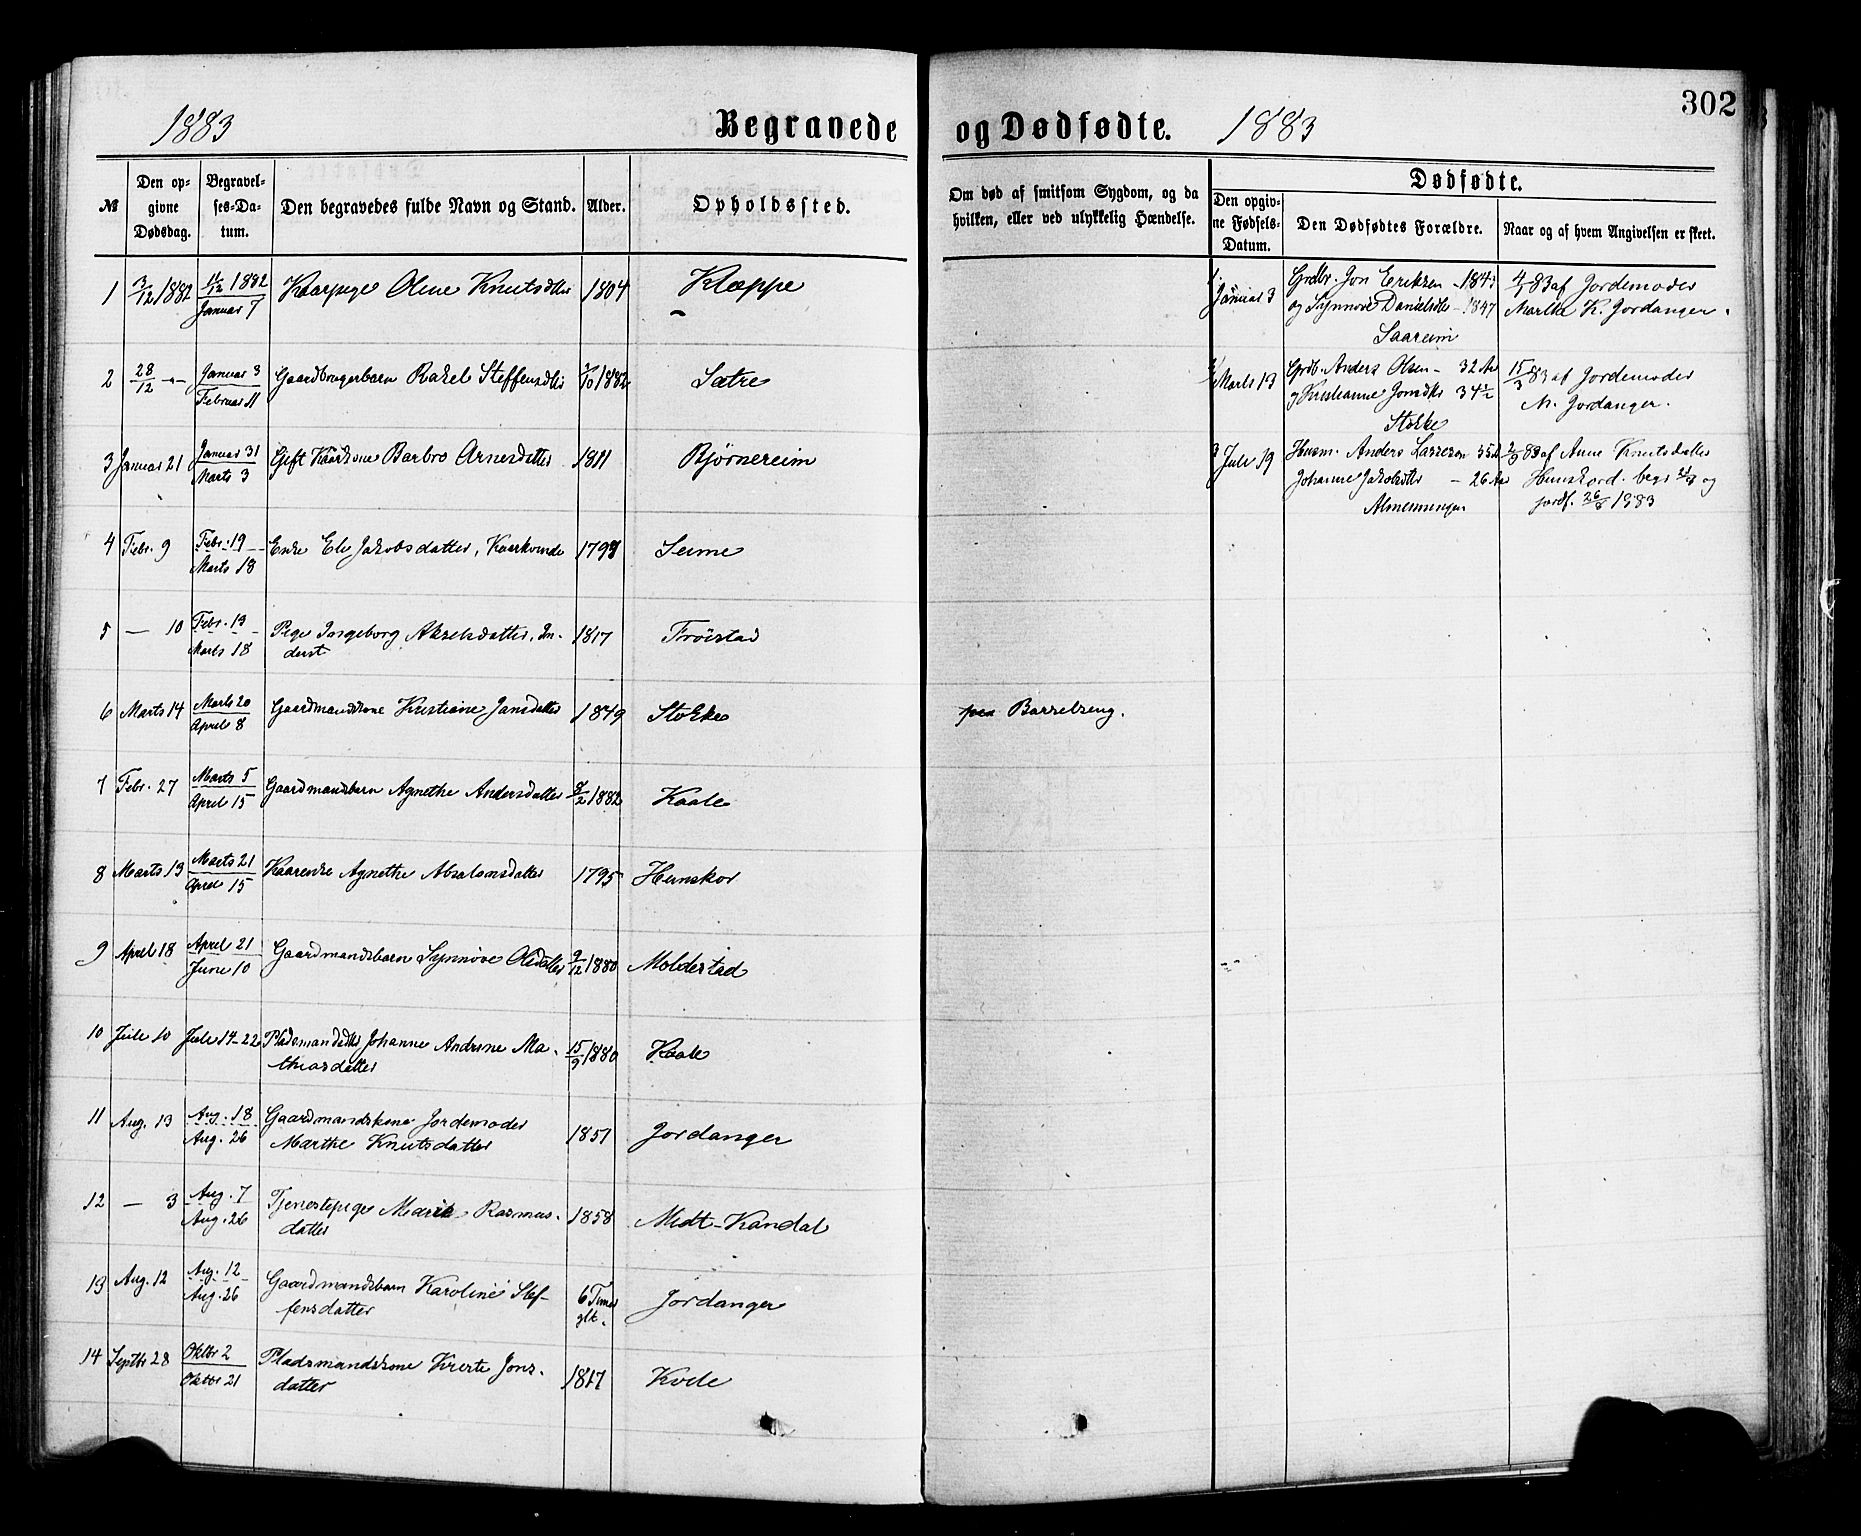 302
1883 Begravede og Dødfødte. 1883
№ Den op-givne Dødsdag. Begravel-ses-Da-tum. Den begravedes fulde Navn og Stand. Alder. Opholdssted.
Om død af smitsom Sygdom, og da hvilken, eller ved ulykkelig Hændelse.
Dødfødte.
Den opgiv-ne Fødsels-Datum. Den Dødfødtes Forældre. Naar og af hvem Angivelsen er skeet.
1 3/12 1882 11/12 1882 Kaarpige Oline Knutsdtr 1804 Kleppe
Januar 7
2 28/12 -- Januar 3 Gaardbrugerbarn Rakel Steffensdtr /10 1882 Sætre
Februar 11
3 Januar 21 Januar 31 Gift Kaarkone Barbro Arnesdatter 1811 Bjørnereim
Marts 3
4 Febr. 9 Febr. 19 Enke Eli Jakobsdatter, Kaarkvinde Seime
Marts 18
5 — 10 Febr. 19 Pige Ingeborg Akselsdatter, In- 1817 Frøistad
Marts 18 derst
6 Marts 14 Marts 20 Gaardmandskone Kristiane Jansdatter 1849 Stokke
April 8
paa Barselseng.
7 Febr. 27 Marts 5 Gaardmandsbarn Agnethe Andersdatter 8/2 1882 Kaale
April 15
8 Marts 13 Marts 21 Kaarenke Agnethe Absalonsdatter 1795 Hunskor
April 15
9 April 18 April 21 Gaardmandsbarn Synnøve Olsdatter 9/12 1880 Moldestad
Juni 10
10 Juli 10 Juli 14-22 Pladsmandsdtr Johanne Andrine Ma- 15/9 1880 Kaale
thiasdatter
11 Aug. 13 Aug. 18 Gaardmandskone Jordemoder
Aug. 26 Marthe Knutsdatter 1851 Jordanger
12 — 3 Aug. 7 Tjenestepige Marie Rasmus- 1858 Midt-Kandal
Aug. 26 datter
13 Aug. 12 Aug. 12 Gaardmandsbarn Karoline Stef- 6 Timer Jordanger
Aug. 26 fensdatter glt.
14 Septbr 28 Oktbr 2 Pladsmandskone Kirste Jons- 1817 Kvile
Oktbr 21 datter
1. Januar 3 Grdbr. Jon Eriksen - 1843 4/1 83 af Jordemoder
og Synnøve Danielsdtr - 1847 Marthe K. Jordanger.
Saareim
2 Marts 13 Grdb. Anders Olsen - 32 Aar 15/3 83 af Jordemoder
og Kristianne Jonsdtr 34 1/2 M. Jordanger.
Stokke
3 Juli 19 Husm. Anders Lassesen 35 A 2/9 83 af Anne Knutsdatter
Johanne Jakobsdtr - 26 Aar Hunskord. begr. og
Almenningen jordf. 26/8 1883